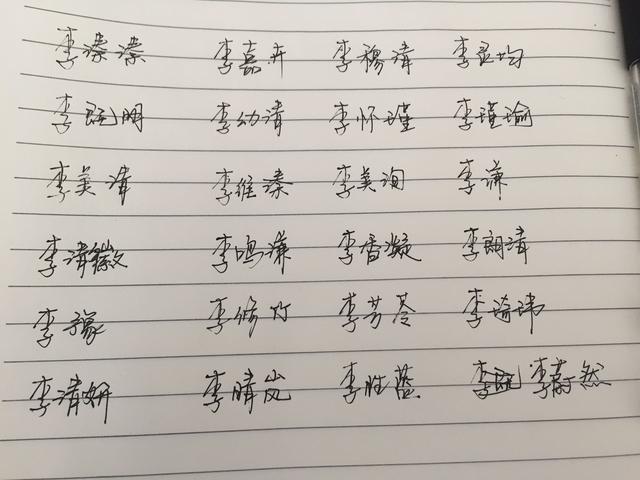 李溱溱 李嘉卉 李穆清 李灵均
李 明 李幼清 李怀瑾 李瑾瑜
李美清 李维溱 李美洵 李谦
李清徽 李鸣谦 李香凝 李朗清
李豫 李修竹 李芳苓 李琦玮
李清妍 李晴岚 李胜蓝 李蔚然